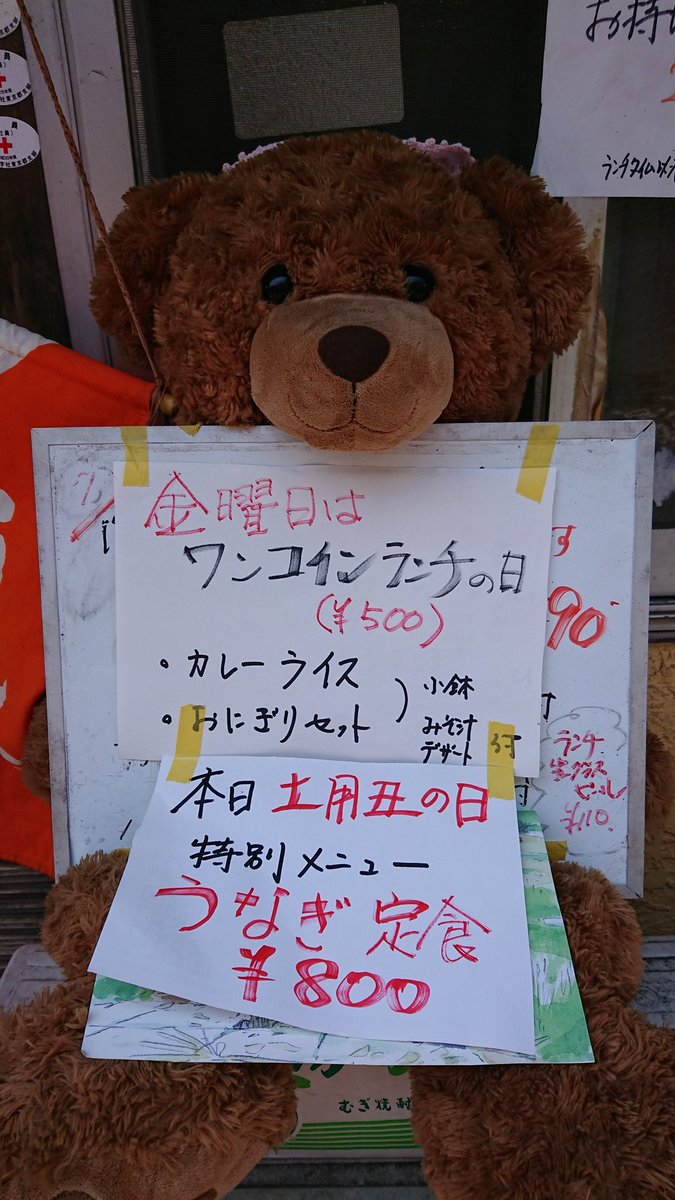 お持
ランチタイム
金曜日は
ワンコインランチの日
(¥500)
・カレーライス
・おにぎりセット
小鉢
みそ汁
デザート 付
90
ランチ
生グラス
ビール
本日 土用丑の日
特別メニュー
うなぎ定食
¥800
むぎ焼酎